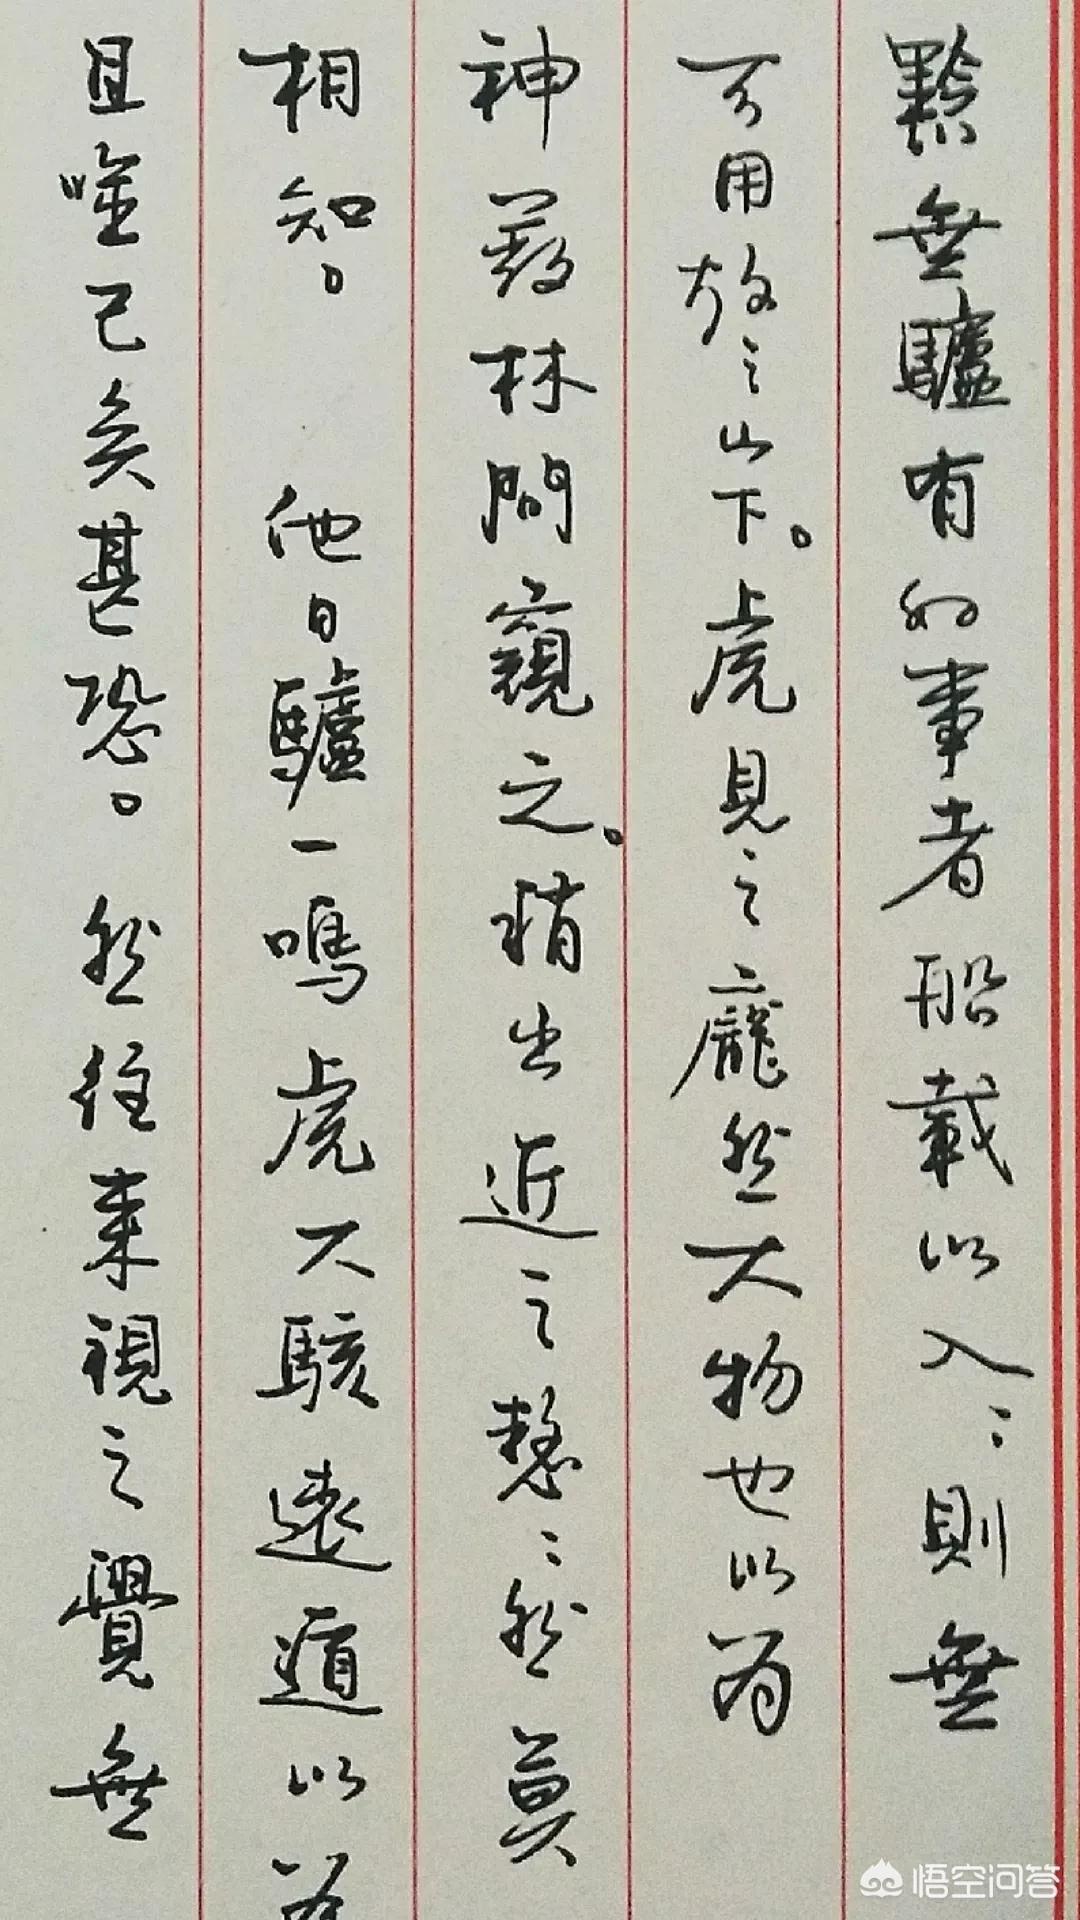 黔無驢有好事者船載以入〻則無
可用放之山下。虎見之龐然大物也以為
神蔽林間窺之。稍出近之憖〻然莫
相知。他日驢一鳴虎大駭遠遁以為
且噬己矣甚恐。然往来視之覺無
悟空问答